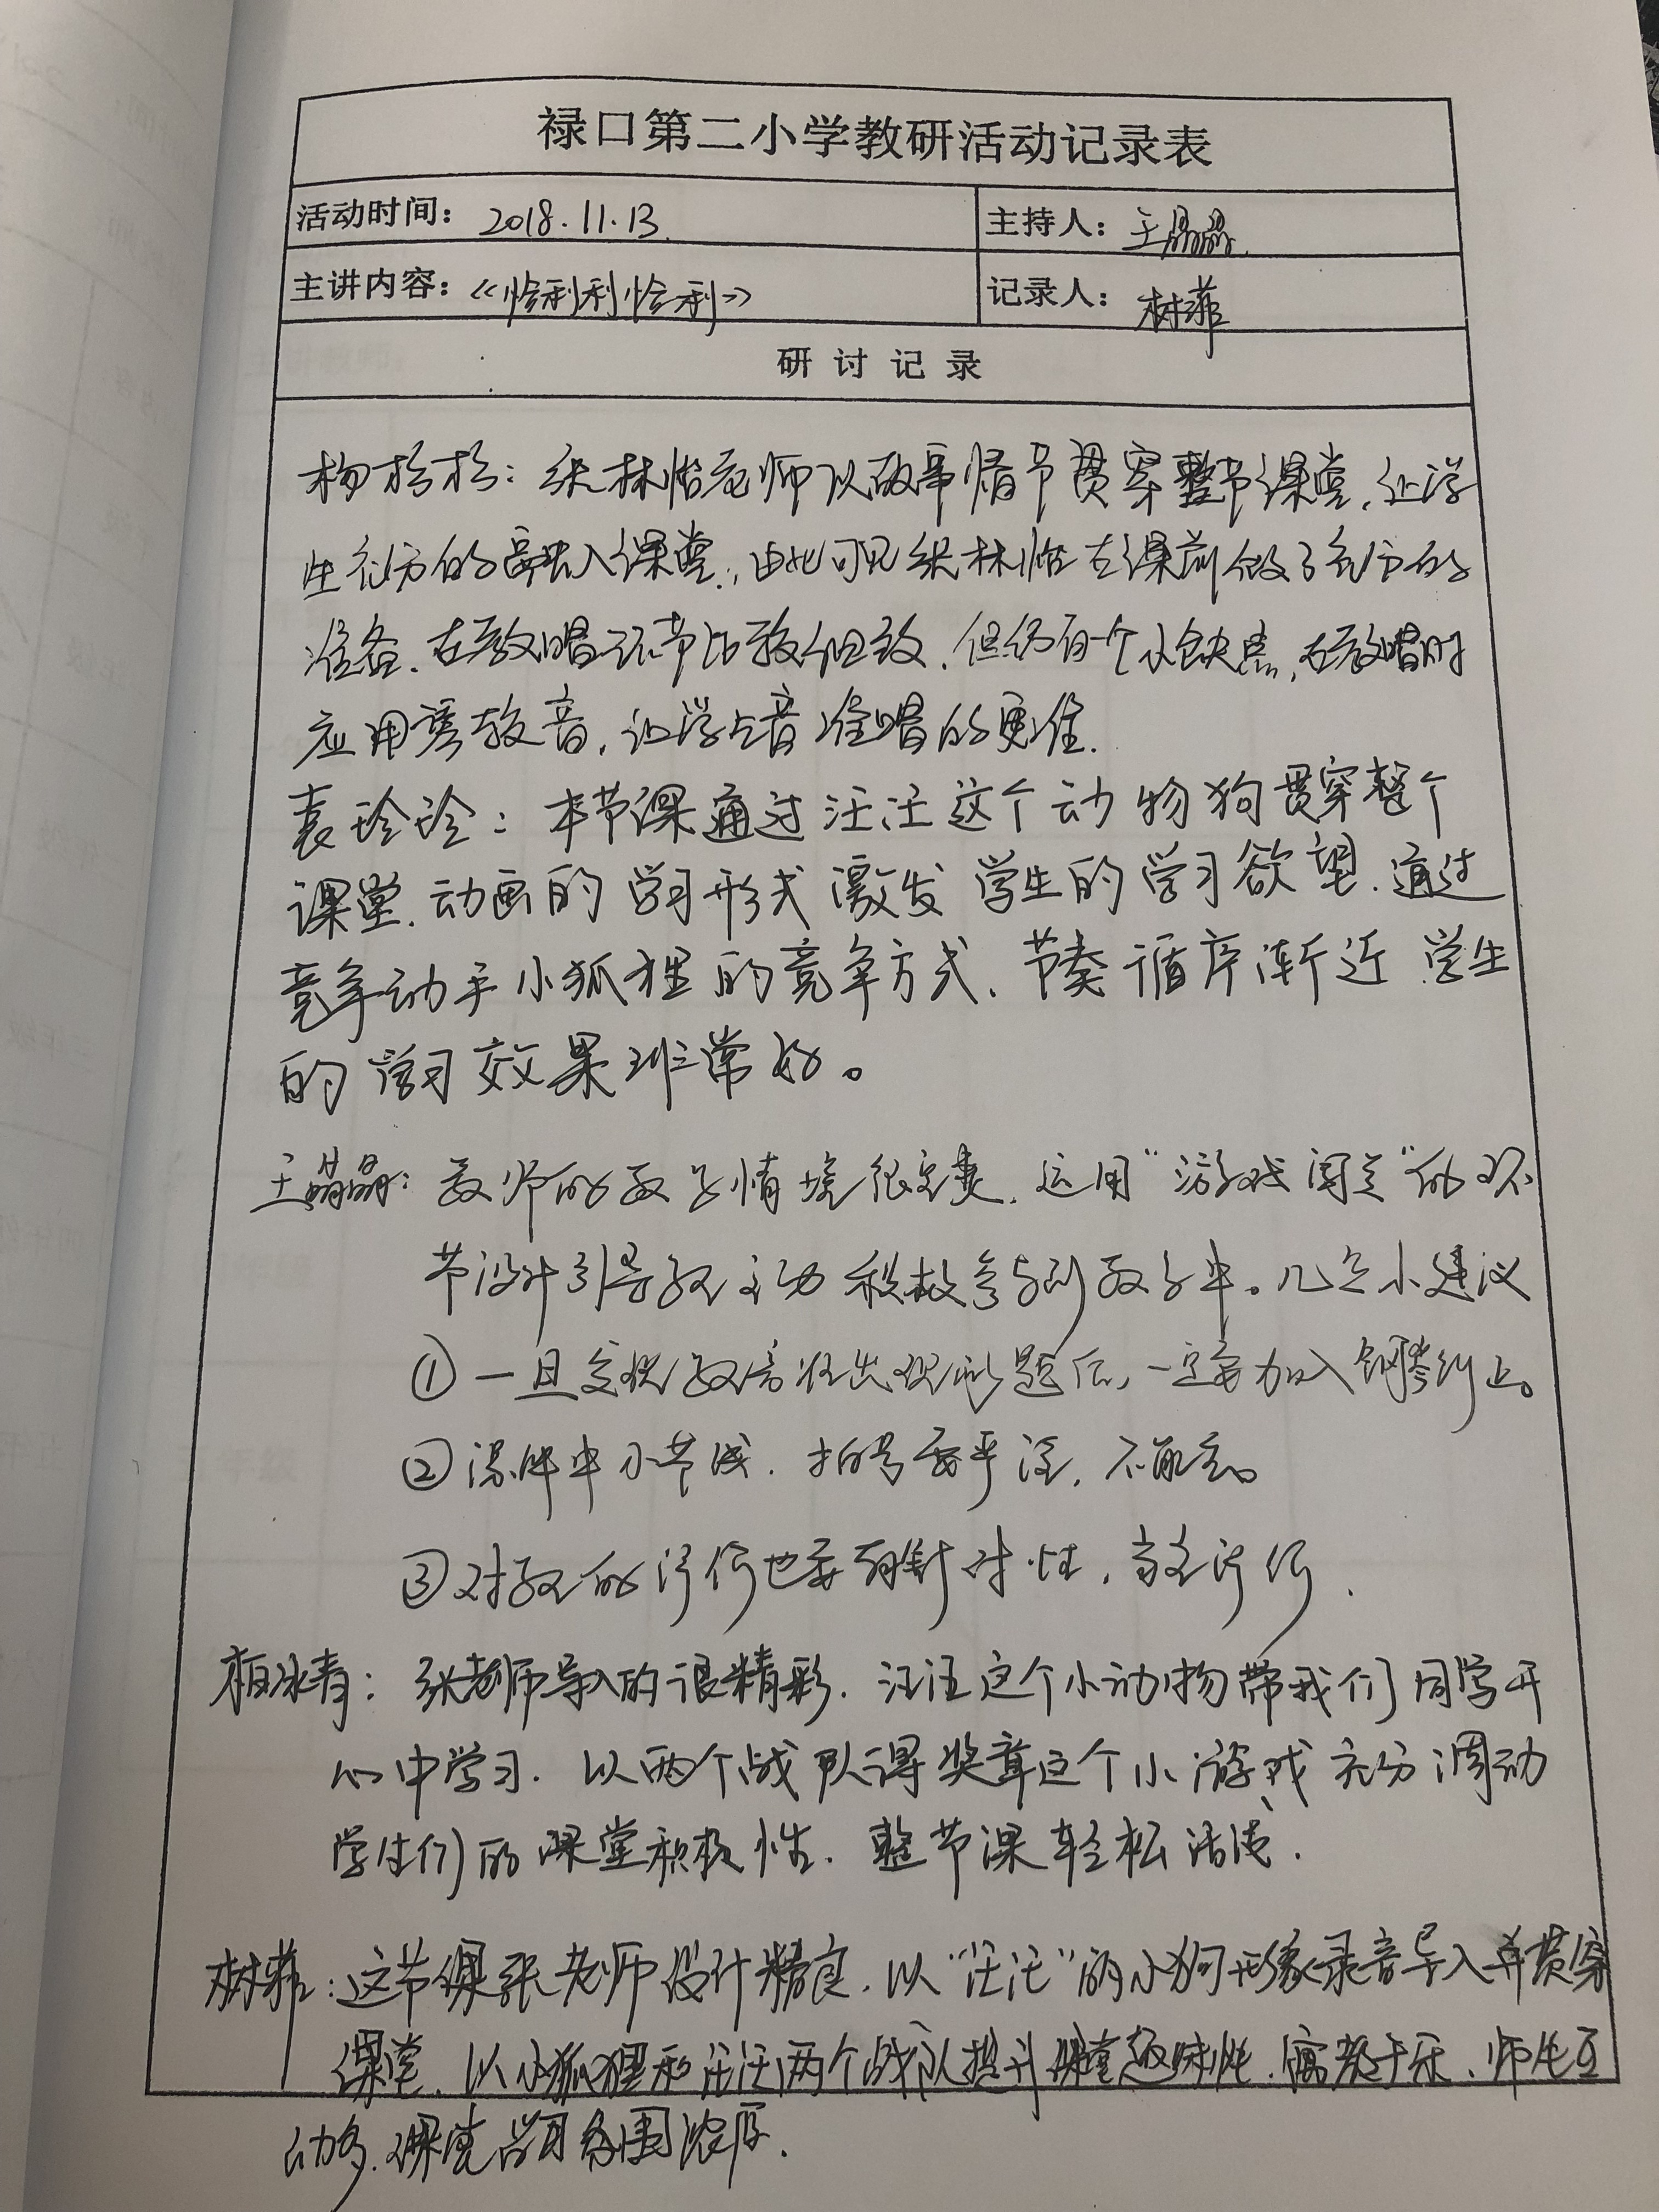 禄口第二小学教研活动记录表
活动时间：2018.11.13.
主持人：王晶晶.
主讲内容：《恰利利恰利》
记录人：林菲
研讨记录
杨杉杉：张林怡老师以故事情节贯穿整节课堂，让学
生充分的融入课堂，由此可见张林怡在课前做了充分的
准备．在教唱环节比较细致．但仍有一个小缺点，在教唱时
应用琴较音，让学生音准唱的更准．
袁玲玲：本节课通过汪汪这个动物狗贯穿整个
课堂．动画的学习形式激发学生的学习欲望．通过
竞争动手小狐狸的竞争方式、节奏循序渐近 学生
的学习效果非常好。
王晶晶：教师的教学情境很完美．运用“游戏闯关”的环
节设计引导孩子主动积极参与到教学中。几点小建议
①一旦发现孩子音准出现问题后，一定要加入钢琴纠正。
②课件中小节线．拍号要严谨，不能忘。
③对孩子的评价也要有针对性，多评价．
柏冰青：张老师导入的很精彩．汪汪这个小动物带我们同学开
心中学习．以两个战队得奖章这个小游戏充分调动
学生们的课堂积极性．整节课轻松活泼．
林菲：这节课张老师设计精良．以“汪汪”的小狗形象录音导入并贯穿
课堂．以小狐狸和汪汪两个战队提升课堂趣味性．寓教于乐、师生互
动多．课堂学习氛围浓厚．